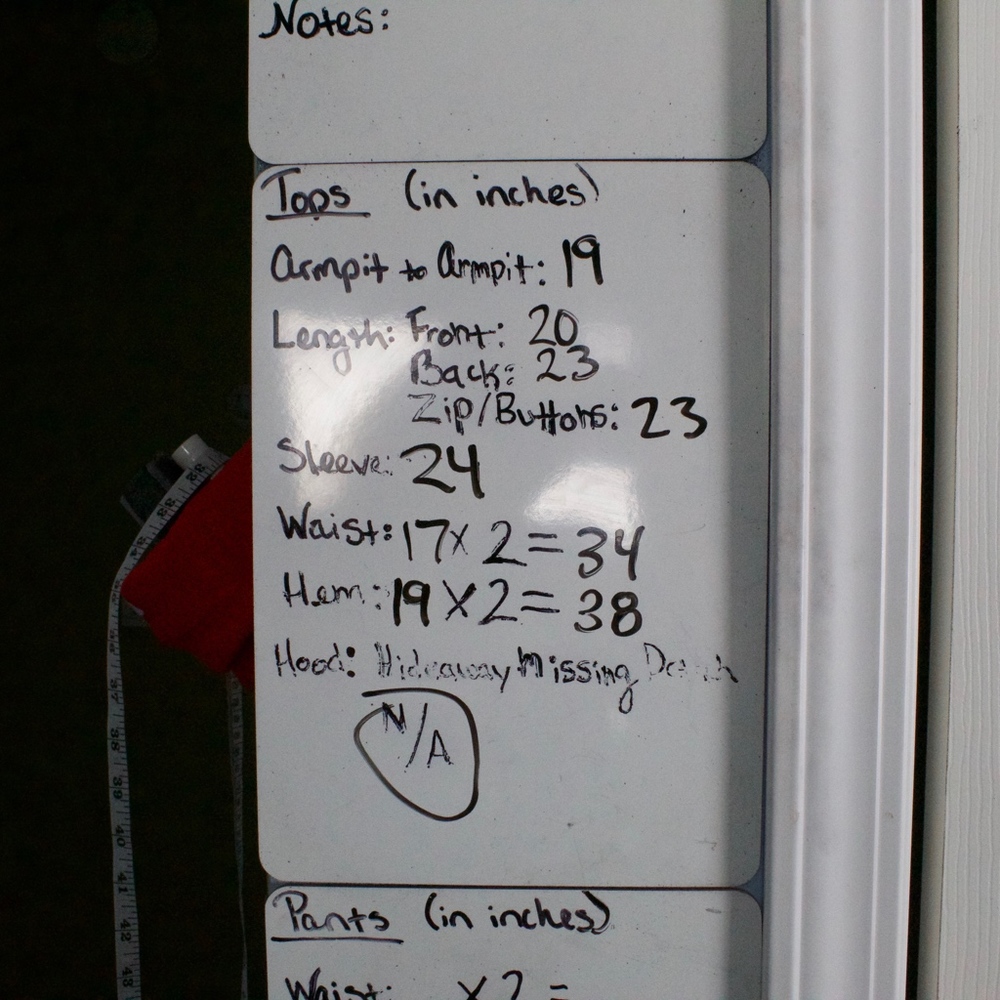 Notes:
Tops (in inches)
Armpit to Armpit: 19
Length: Front: 20
Back: 23
Zip/Buttons: 23
Sleeve: 24
Waist: 17 x 2 = 34
Hem: 19 x 2 = 38
Hood: Hideaway Missing
N/A
Pants (in inches)
Waist: x 2 =